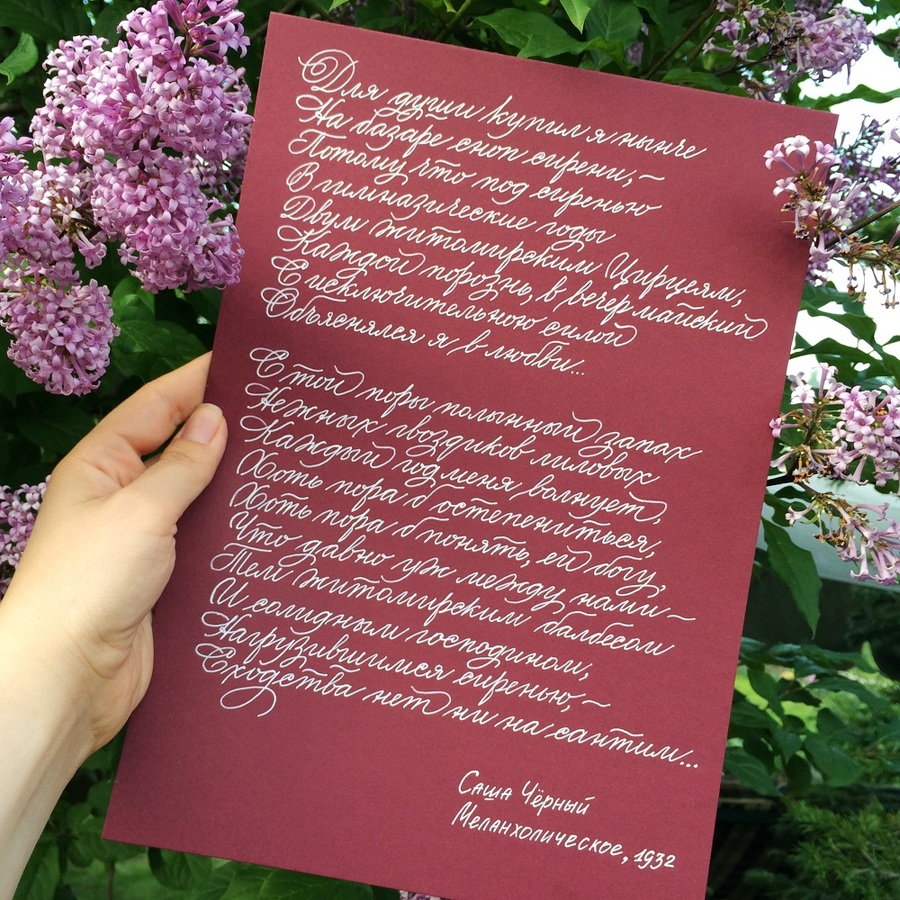 Для души купил я нынче
На базаре сноп сирени,~
Потому что под сиренью
В гимназические годы
Двум житомирским Цирцеям,
Каждой порознь, в вечер майский
С исключительною силой
Объяснялся я в любви...
С той поры полынный запах
Нежных гвоздиков лиловых
Каждый год меня волнует,
Хоть пора б остепениться,
Хоть пора б понять, ей богу,
Что давно уж между нами –
Тем житомирским балбесом
И солидным господином,
Нагрузившимся сиренью,~
Сходства нет ни на сантим...
Саша Чёрный
Меланхолическое, 1932